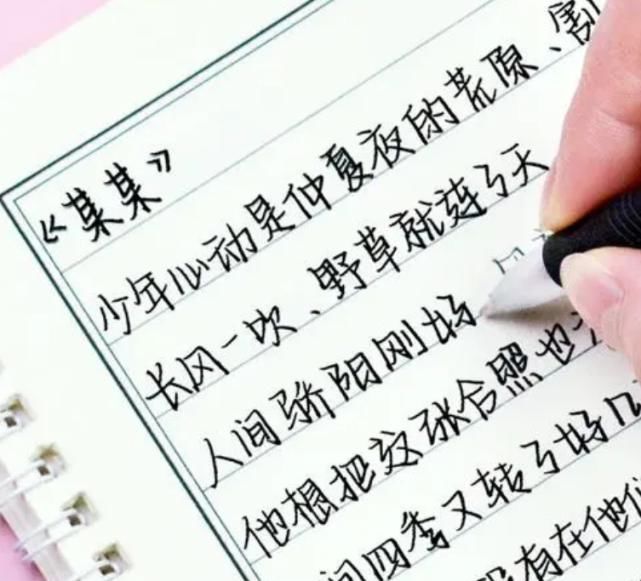 《某某》
少年心动是仲夏夜的荒原、割
长风一吹、野草就连了天
人间骄阳刚好
他想把这张合照也
间四季又转了好几
没有在他们